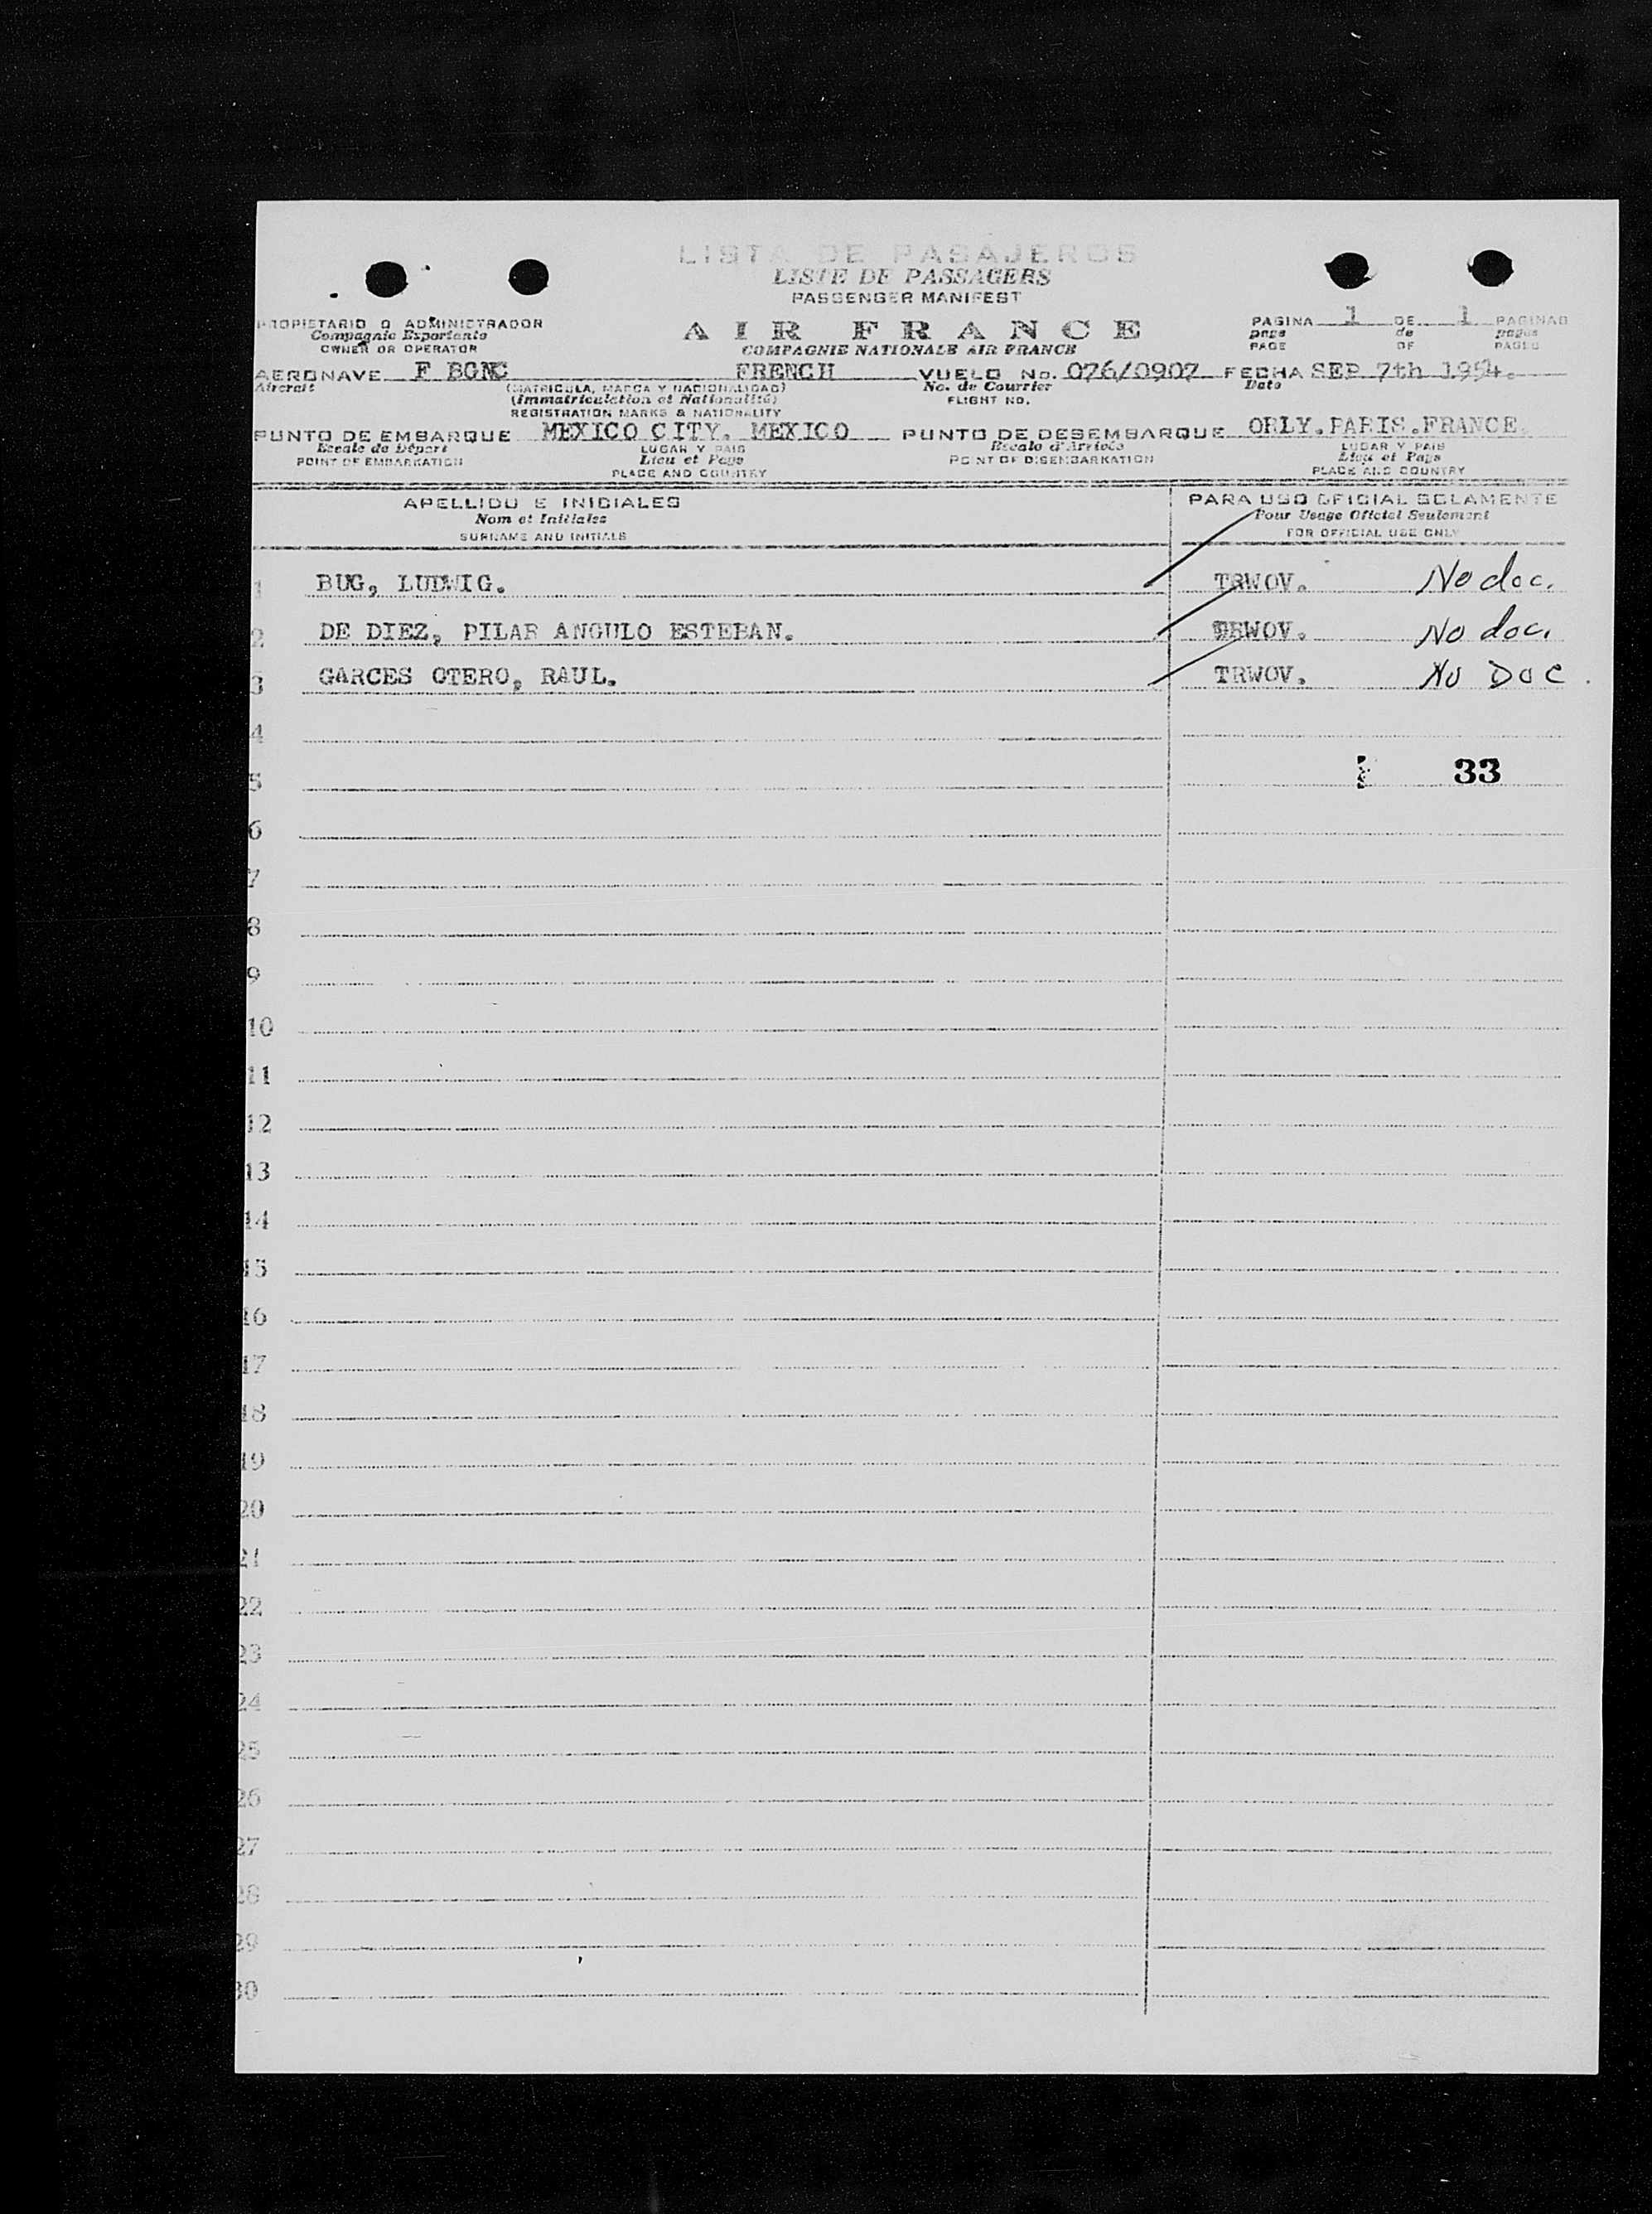 LISTA DE PASAJEROS
LISTE DE PASSAGERS
PASSENGER MANIFEST
PROPIETARIO O ADMINISTRADOR
Compagnie Exportante
OWNER OR OPERATOR
AIR FRANCE
COMPAGNIE NATIONALE AIR FRANCE
PAGINA 1 DE 1 PAGINAS
page de pages
PAGE OF PAGES
AERONAVE F BGNC FRENCH VUELO No. 076/0907 FECHA SEP 7th 1954.
Aircraft (MATRICULA, MARCA Y NACIONALIDAD) No. de Courrier Date
(Immatriculation et Nationalité) FLIGHT NO.
REGISTRATION MARKS & NATIONALITY
PUNTO DE EMBARQUE MEXICO CITY. MEXICO PUNTO DE DESEMBARQUE ORLY.PARIS.FRANCE.
Escale de Départ LUGAR Y PAIS Escale d'Arrivée LUGAR Y PAIS
POINT OF EMBARKATION Lieu et Pays POINT OF DISEMBARKATION Lieu et Pays
PLACE AND COUNTRY PLACE AND COUNTRY
APELLIDO E INICIALES PARA USO OFICIAL SOLAMENTE
Nom et Initiales Pour Usage Officiel Seulement
SURNAME AND INITIALS FOR OFFICIAL USE ONLY
1 BUG, LUDWIG. TRWOV. No doc.
2 DE DIEZ, PILAR ANGULO ESTEBAN. TRWOV. No doc.
3 GARCES OTERO, RAUL. TRWOV. No Doc.
4
5 33
6
7
8
9
10
11
12
13
14
15
16
17
18
19
20
21
22
23
24
25
26
27
28
29
30